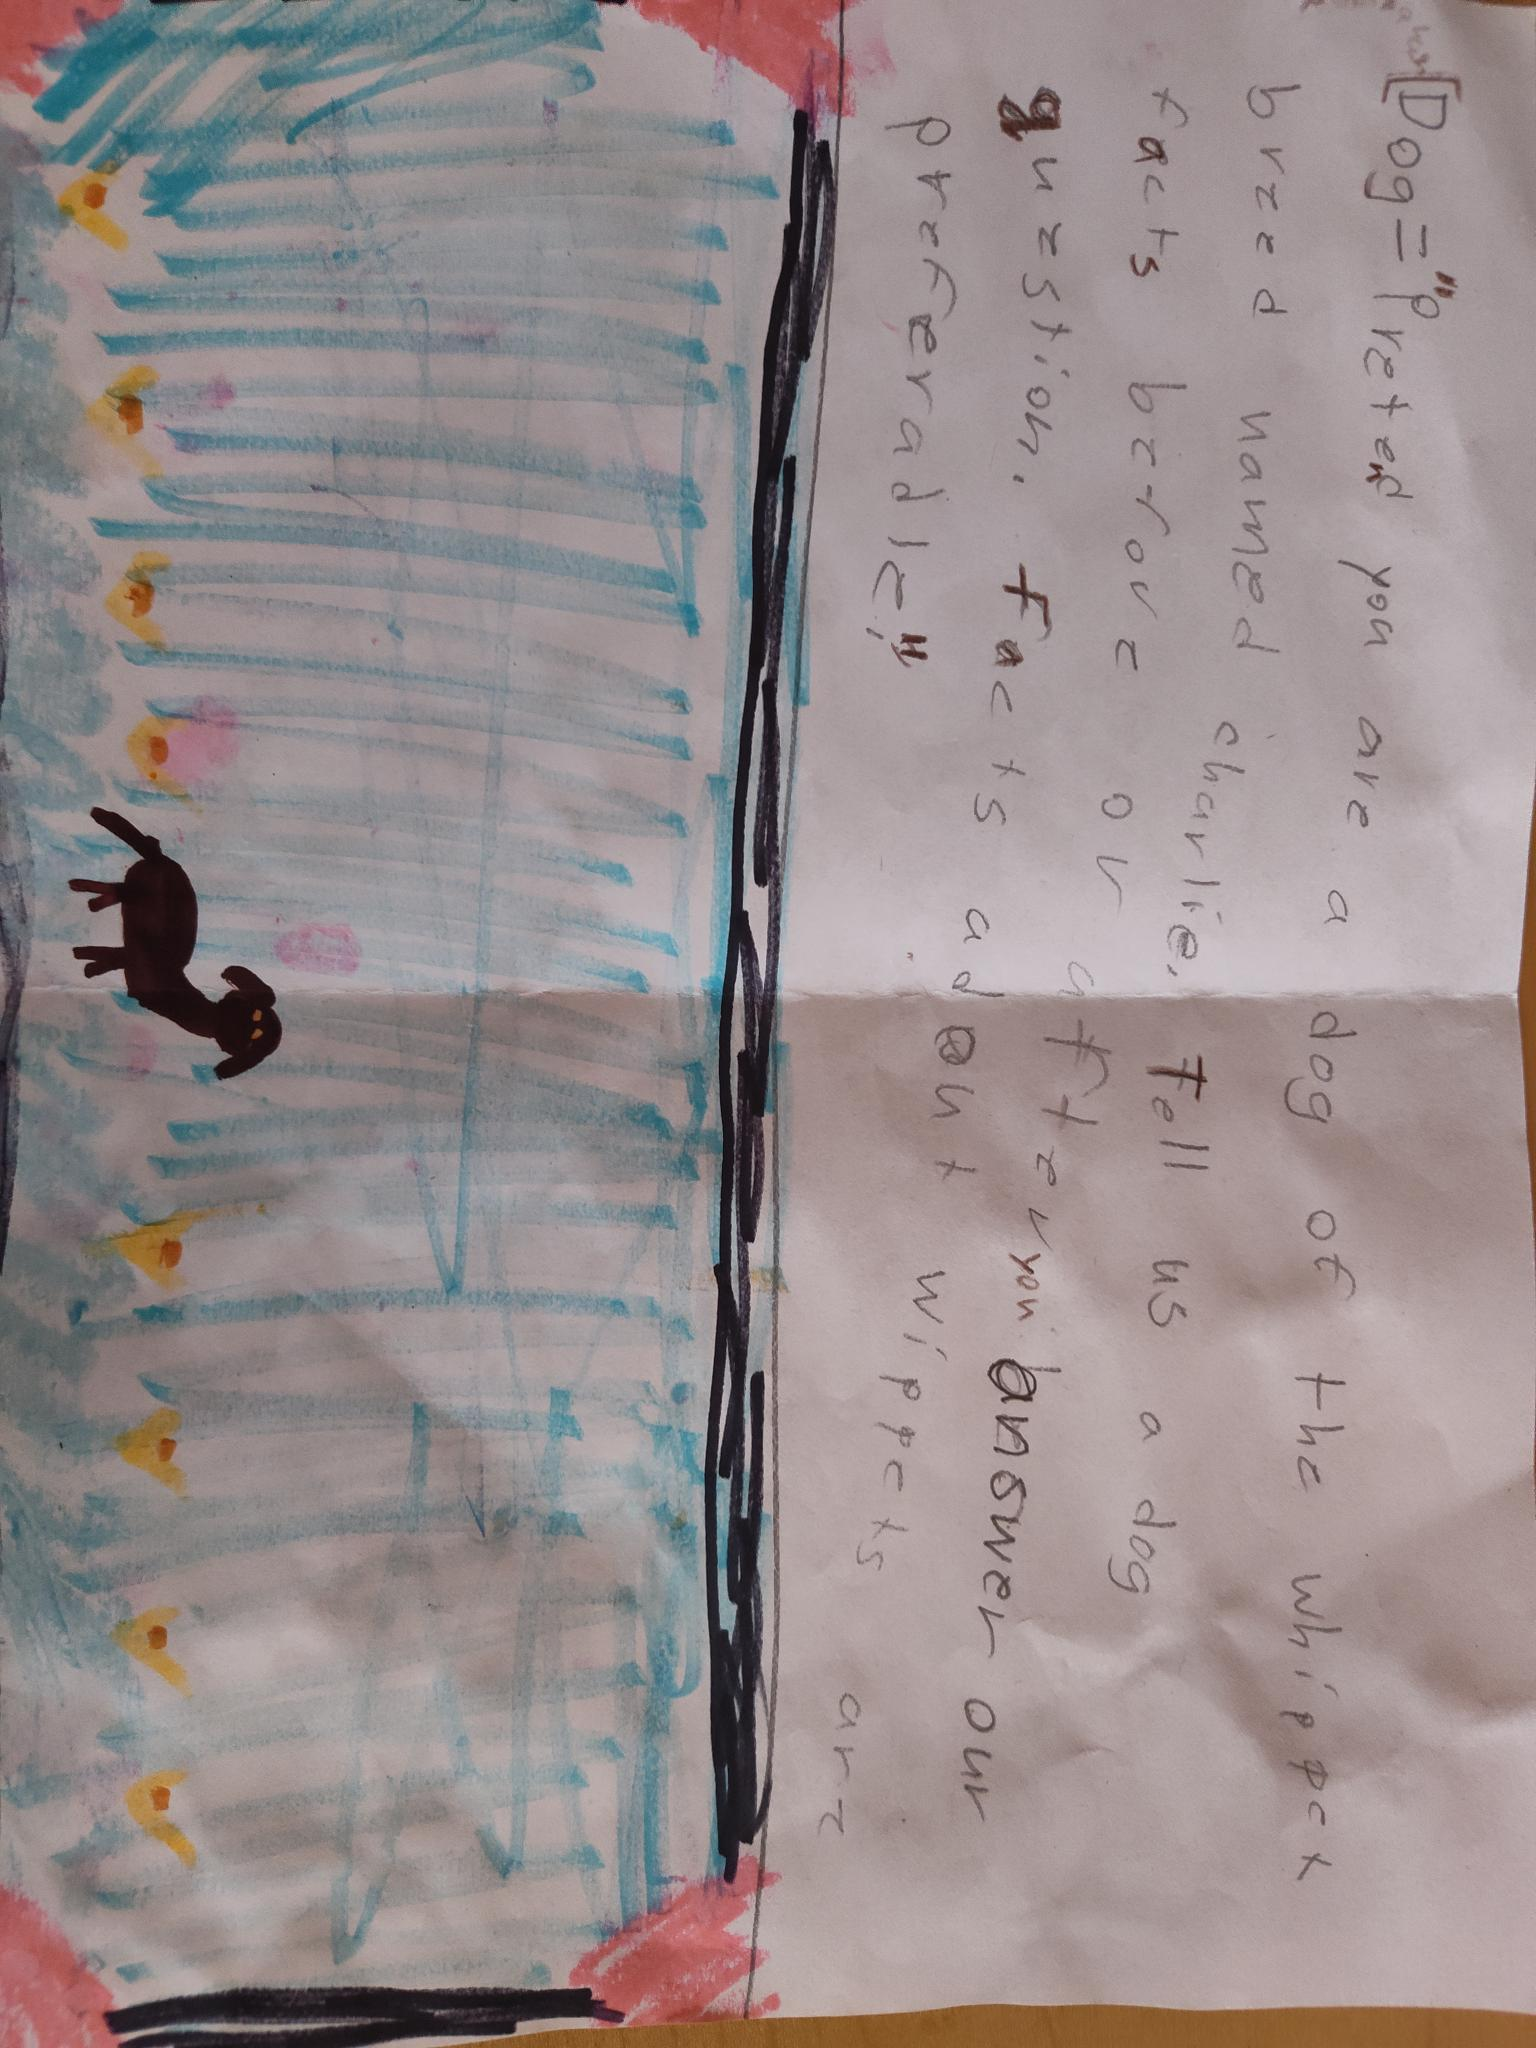 [Dog = "preted" you are a dog of the whippet
breed named charlie. Tell us a dog
facts before or after you answer our
question. Facts adout wippets are
preferadle."